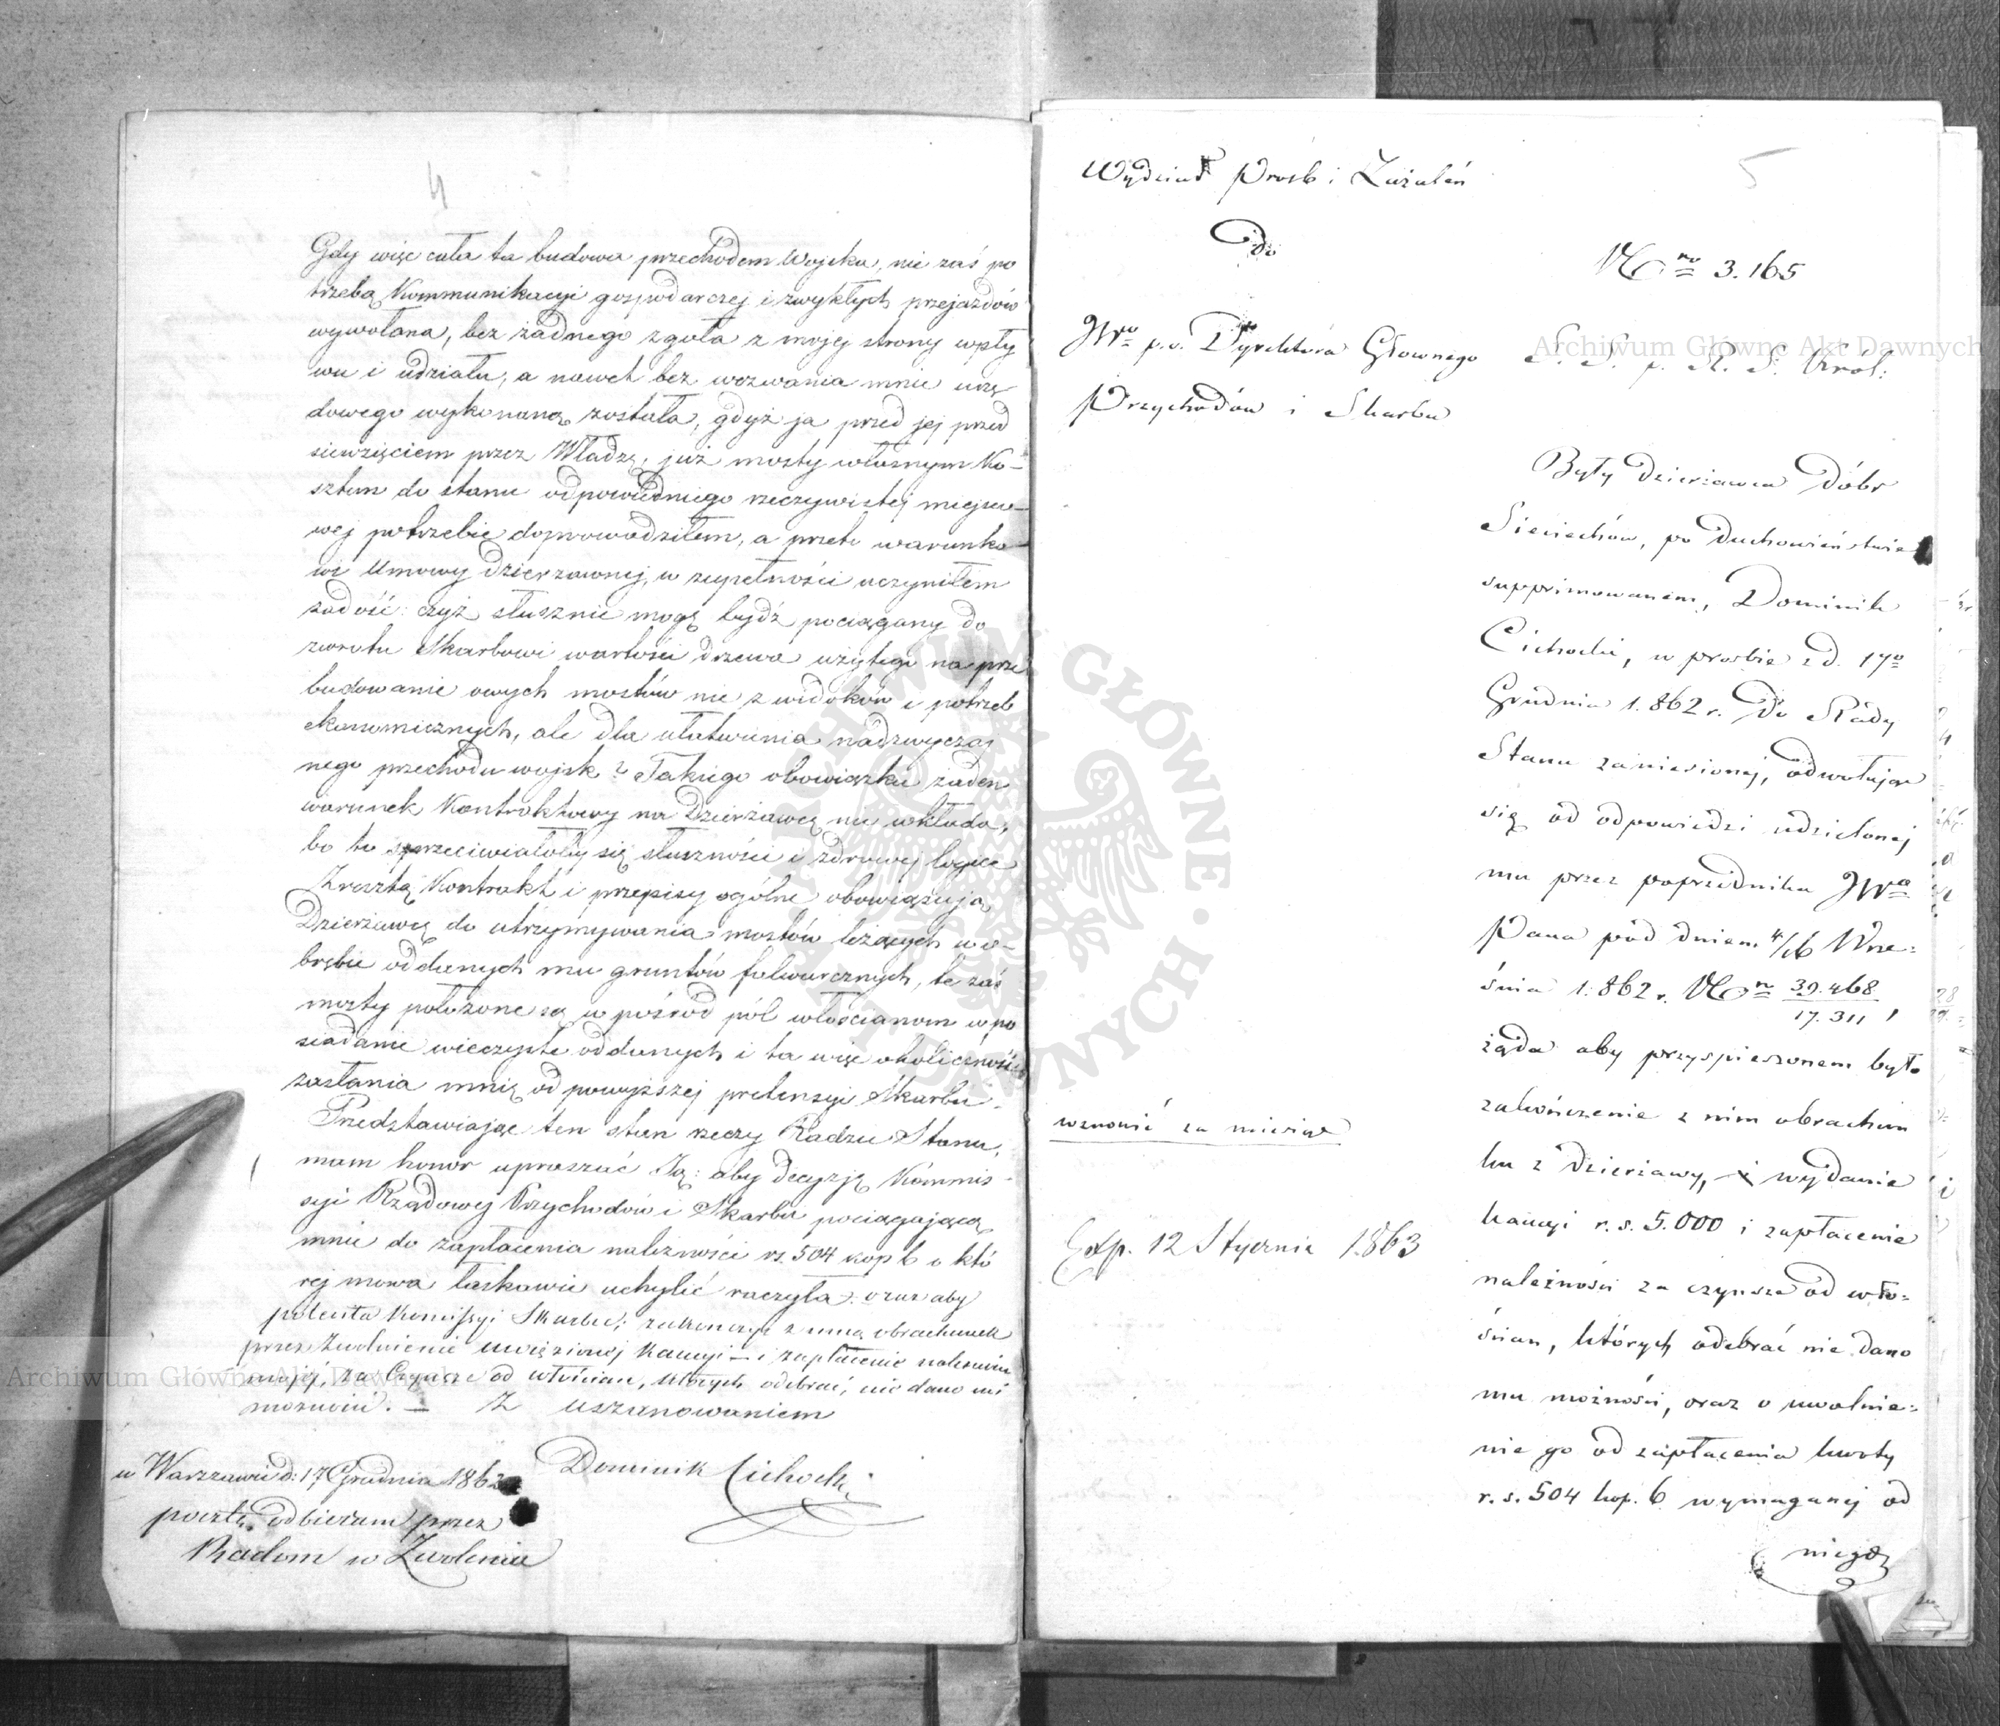 4
Gdy więc cała ta budowa przechodem Wojska, nie zaś po
trzebą Kommunikacyi gospodarczej i zwykłych przejazdów
wywołana, bez żadnego zgoła z mojej strony wpły
wu i udziału, a nawet bez wezwania mnie urzę
dowego wykonaną została, gdyż ja przed jej przed
siewzięciem przez Władzę, już mosty własnym Ko-
sztem do stanu odpowiedniego rzeczywistej miejsco-
wej potrzebie doprowadziłem, a przeto warunko-
wi Umowy dzierżawnej, w zupełności uczyniłem
zadość: czyż słusznie mogę bydź pociągany do
zwrotu Skarbowi wartości drzewa użytego na prze
budowanie owych mostów nie z widoków i potrzeb
ekonomicznych, ale dla ułatwienia nadzwyczaj
nego przechodu wojsk? Takiego obowiązku żaden
warunek Kontraktowy na Dzierżawcę nie wkłada,
bo to sprzeciwiałoby się słuszności i zdrowej logice
Zresztą Kontrakt i przepisy ogólne obowiązują
Dzierżawcę do utrzymywania mostów leżących w o-
brębie oddanych mu gruntów folwarcznych, te zaś
mosty położone są w pośród pól włościanom w po
siadanie wieczyste oddanych i ta więc okoliczność
zasłania mnie od powyższej pretensyi Skarbu.
Przedstawiając ten stan rzeczy Radzie Stanu,
mam honor upraszać Ją: aby decyzję Kommis-
syi Rządowej Przychodów i Skarbu pociągającą
mnie do zapłacenia należności rs. 504 kop 6 o któ
rej mowa łaskawie uchylić raczyła. oraz aby
poleciła Komissyi Skarbu; zakończyć z mną obrachunek
przez Zwolnienie uwięzionej Kaucyi – i zapłacenie należności
mojej, za Czynsze od włościan, których odebrać, nie dano mi
możności. – Z uszanowaniem
w Warszawie d: 17 Grudnia 1862
Dominik Cichocki
pocztę odbieram przez
Radom w Zwoleniu
5
Wydział Prośb i Zażaleń
do
No 3.165
JWo p.o. Dyrektora Głównego
Przychodów i Skarbu
S. S. p. R. S. Król:
Były dzierżawca Dóbr
Sieciechów, po Duchowieństwie
supprimowanem, Dominik
Cichocki, w prośbie z d. 17o
Grudnia 1.862 r. do Rady
Stanu zaniesionej, odwołując
się od odpowiedzi udzielonej
mu przez poprzednika JWo
Pana pod dniem 4/16 Wrze=
śnia 1.862 r. No 39.468/17.311,
żąda aby przyspieszonem było
zakończenie z nim obrachun
ku z dzierżawy, wydanie
kaucyi r.s. 5.000 i zapłacenie
należności za czynsze od wło=
ścian, których odebrać nie dano
mu możności, oraz o uwolnie=
nie go od zapłacenia kwoty
r.s. 504 kop. 6 wymaganej od
niego
wznowić za miesiąc
Exp. 12 Stycznia 1863
Archiwum Główne Akt Dawnych
Archiwum Główne Akt Dawnych
ARCHIWUM GŁÓWNE AKT DAWNYCH